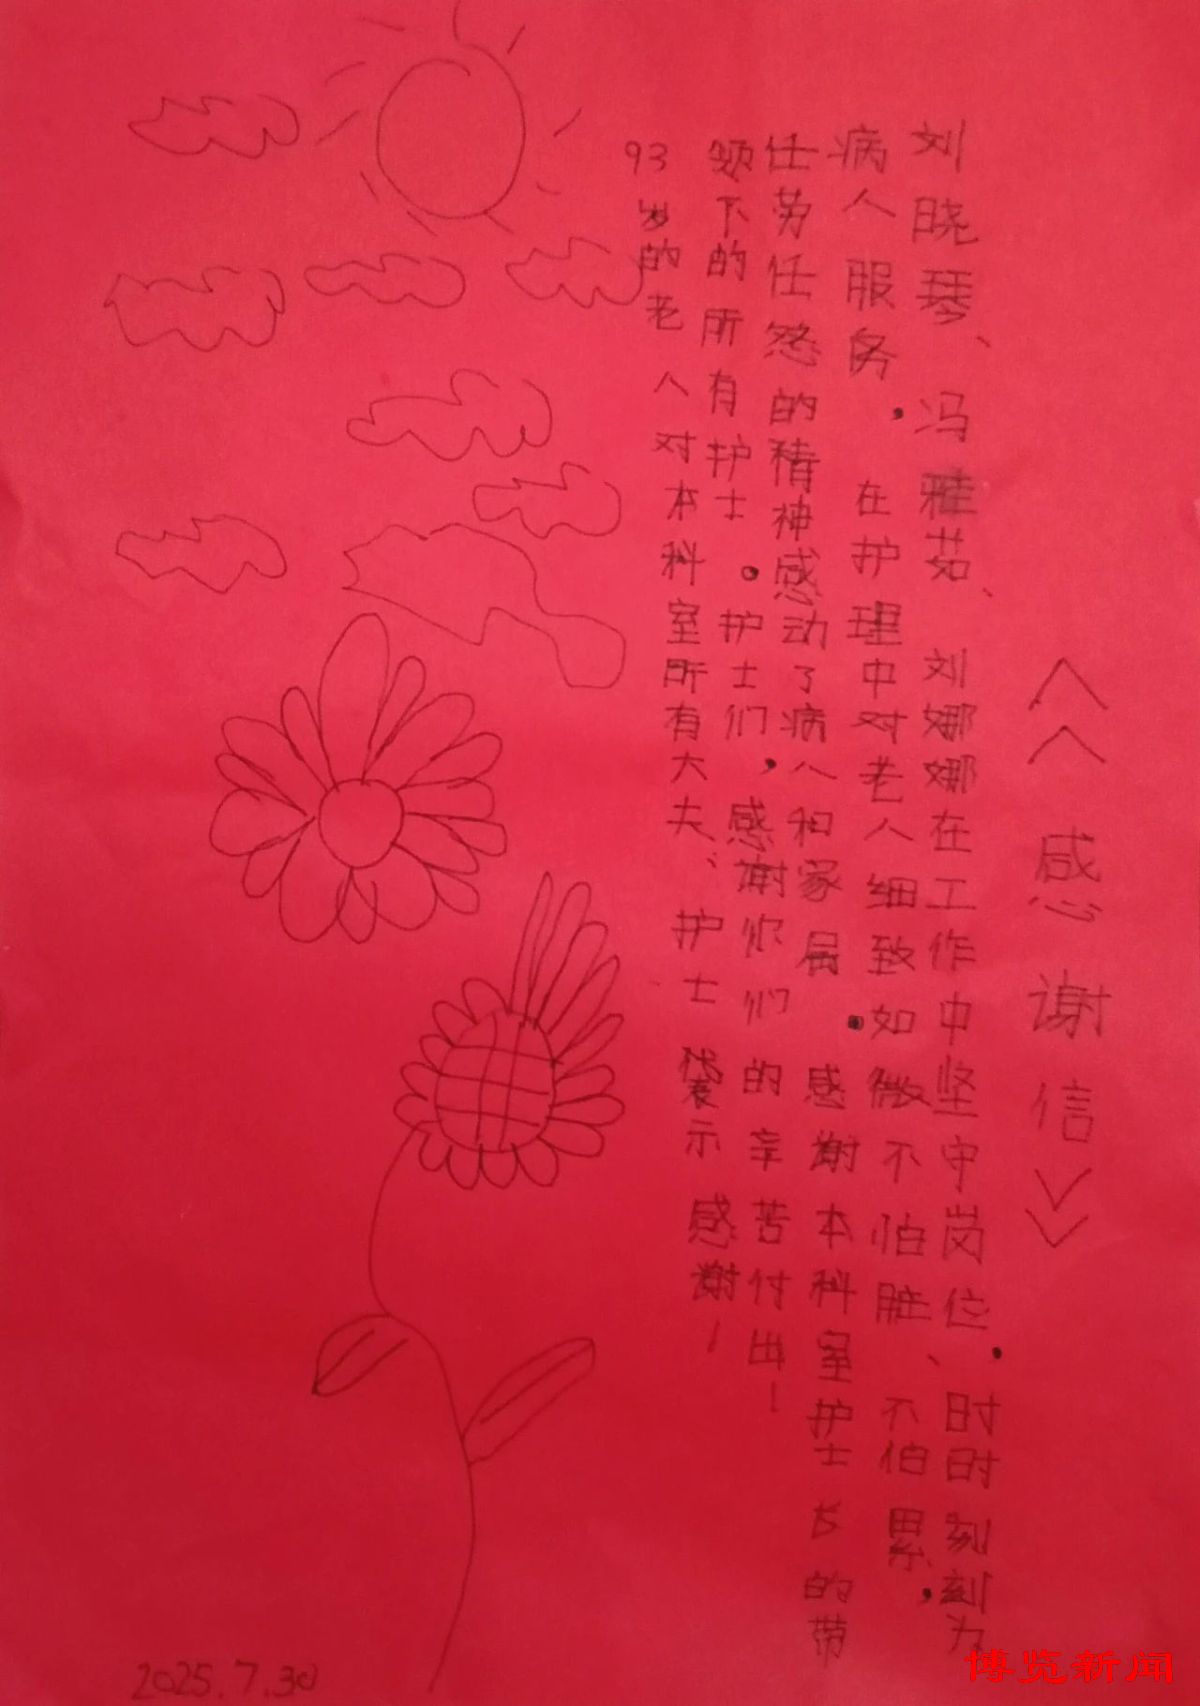 《感谢信》
刘晓琴、冯雅茹、刘娜娜在工作中坚守岗位，时时刻刻为
病人服务，在护理中对老人细致如微不怕脏、不怕累，
任劳任怨的精神感动了病人和家属。感谢本科室护士长的带
领下的所有护士。护士们，感谢你们的辛苦付出！
93岁的老人对本科室所有大夫、护士表示感谢！
2025.7.30
博览新闻